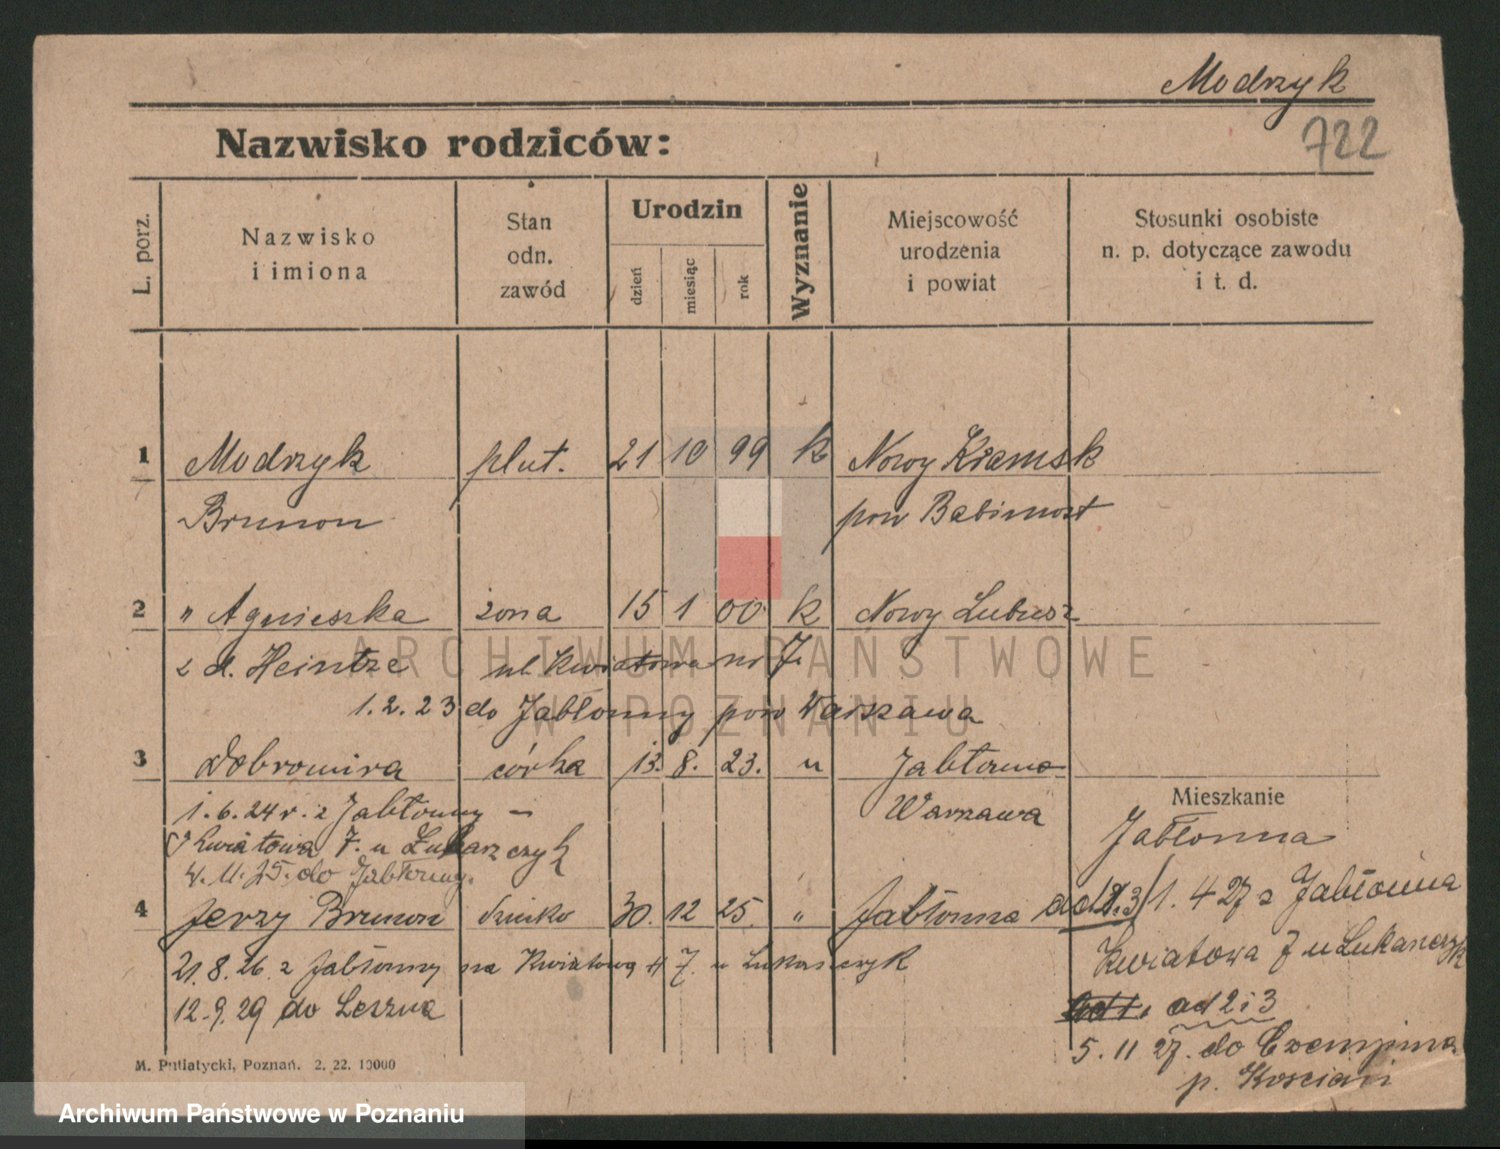 Modrzyk
722
Nazwisko rodziców:
L. porz.
Nazwisko i imiona
Stan odn. zawód
Urodzin
dzień
miesiąc
rok
Wyznanie
Miejscowość urodzenia i powiat
Stosunki osobiste n. p. dotyczące zawodu i t. d.
1 Modrzyk plut. 21 10 99 k Nowy Kramsk
Brunon pow Babimost
2 " Agnieszka żona 15 1 00 k Nowy Lubusz
z d. Heintze ul. Kwiatowa nr 7.
1.2.23 do Jabłonny pow Warszawa
3 Dobromira córka 13. 8. 23. " Jabłonna
Warszawa
1.6.24 r. z Jabłonny –
Kwiatowa 7. u Łukaszczyk
4.11.25. do Jabłonny.
Mieszkanie
Jabłonna
4 Jerzy Brunon 30. 12 25. " Jabłonna
1.4 27 z Jabłonna
21.8.26. z Jabłonny na Kwiatową 7. u Łukaszczyk
Kwiatowa 7 u Łukaszczyk
12.9.29 do Leszna
ad 2 i 3
5. 11 27. do Czempina
p. Kościan
M. Putiatycki, Poznań. 2. 22. 10000
ARCHIWUM PAŃSTWOWE
W POZNANIU
Archiwum Państwowe w Poznaniu